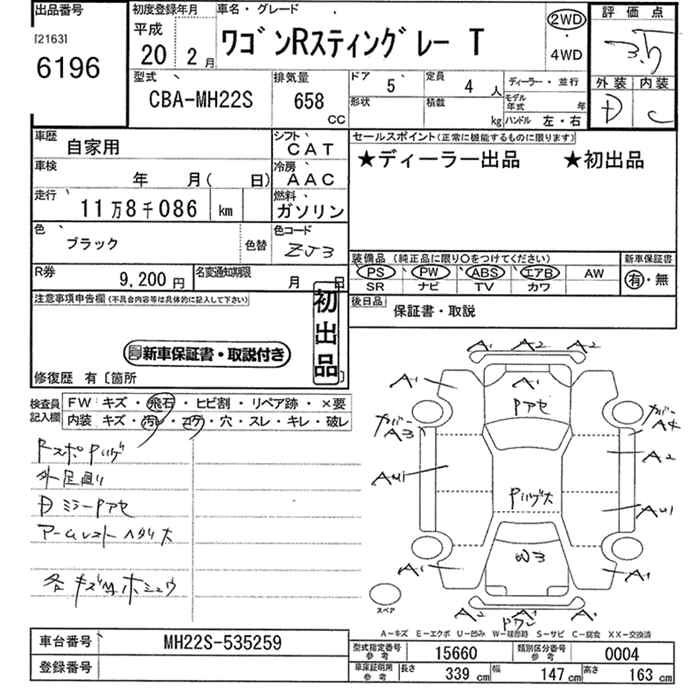 出品番号
[2163]
6196
初度登録年月
平成
20年 2月
車名・グレード
ワゴンRスティングレー T
2WD
・
4WD
評価点
3.5
外装 内装
D C
型式
CBA-MH22S
排気量
658
CC
ドア
5
定員
4 人
形状
積載
kg
ディーラー・並行
モデル年式 年
ハンドル 左・右
車歴
自家用
シフト
CAT
車検
年 月( 日)
冷房
AAC
走行
11万8千086 km
燃料
ガソリン
色
ブラック
色替
色コード
ZJ3
R券
9,200円
名変通知期限
月 日
セールスポイント(正常に機能するものに限ります)
★ディーラー出品 ★初出品
装備品 (純正品に限り○をつけてください)
新車保証書
PS PW ABS エアB AW
SR ナビ TV カワ
有・無
後日品
保証書・取説
注意事項申告欄(不具合内容等は具体的に記入して下さい)
初出品
新車保証書・取説付き
修復歴 有〔箇所 〕
検査員
記入欄
FW キズ・飛石・ヒビ割・リペア跡・×要
内装 キズ・汚レ・コゲ・穴・スレ・キレ・破レ
Fスポ Pハゲ
外足廻り
Dミラー Pアセ
アームレスト ヘタリ大
各キズ凹ホシュウ
A1 A2 A2
A1
A1
Pアセ
カバー
A3
カバー
A4
A2
AU1
Pハゲ大
AU1
W3
A1
A1
A2 A1
スペア
A-キズ E-エクボ U-凹み W-補修跡 S-サビ C-腐食 XX-交換済
車台番号
MH22S-535259
登録番号
型式指定番号
参考
15660
類別区分番号
参考
0004
車庫証明用
参考
長さ
339 cm
幅
147 cm
高さ
163 cm